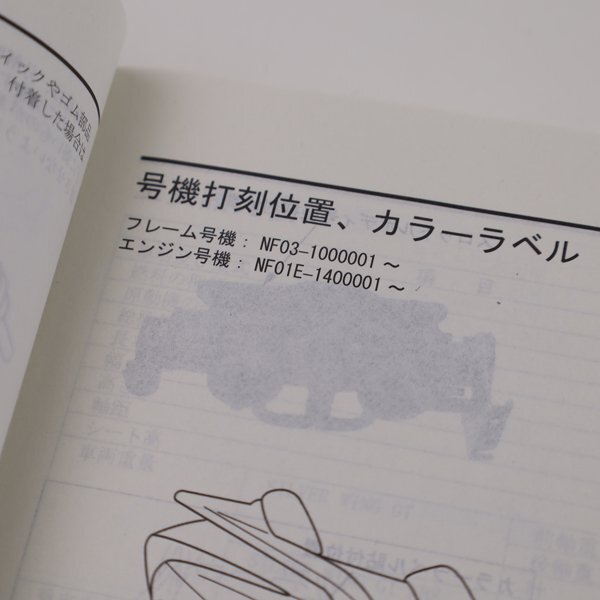 イックやゴム部品
付着した場合は
号機打刻位置、カラーラベル
フレーム号機： NF03-1000001 ～
エンジン号機： NF01E-1400001 ～